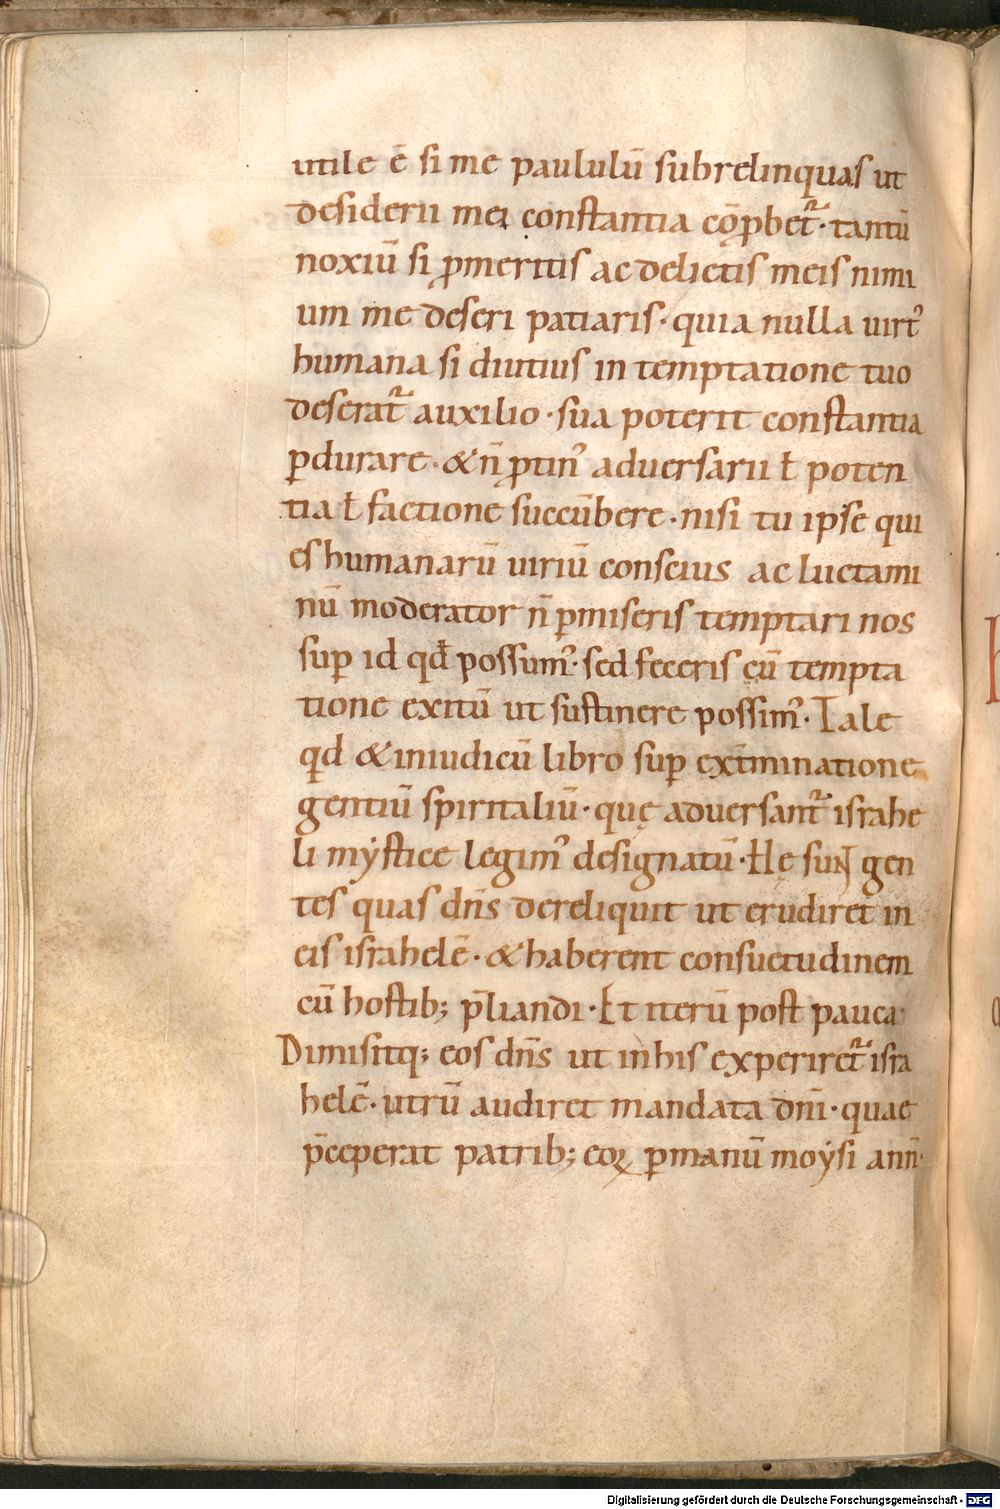 utile ē si me paululū subrelinquas ut
desiderii mei constantia cōꝓbet᷑· tantū
noxiū si ꝓmeritis ac delictis meis nimi
um me deseri patiaris· quia nulla uirt᾽
humana si diutius in temptatione tuo
deserat᷑ auxilio· sua poterit constantia
ꝑdurare· & n̄ ꝓtin᾽ aduersarii ł poten
tia ł factione succūbere· nisi tu ipse qui
es humanarū uiriū conscius ac luctami
nū moderator n̄ ꝑmiseris temptari nos
suꝑ id qđ possum᾽· sed feceris cū tempta
tione exitū ut sustinere possim᾽· Tale
qđ & iniudicū libro suꝑ ext̄minatione
gentiū spiritaliū· quę aduersant᷑ israhe
li mẏstice legim᾽ designatū· Hę sunt gen
tes quas dn̄s dereliquit ut erudiret in
eis israhelē· & haberent consuetudinem
cū hostib; p̄liandi· Et iterū post pauca·
Dimisitq; eos dn̄s ut in his experiret᷑ isra
helē· utrū audiret mandata dn̄i· quae
p̄ceperat patrib; eoꝝ ꝑmanū moẏsi ann̄·
Digitalisierung gefördert durch die Deutsche Forschungsgemeinschaft - DFG